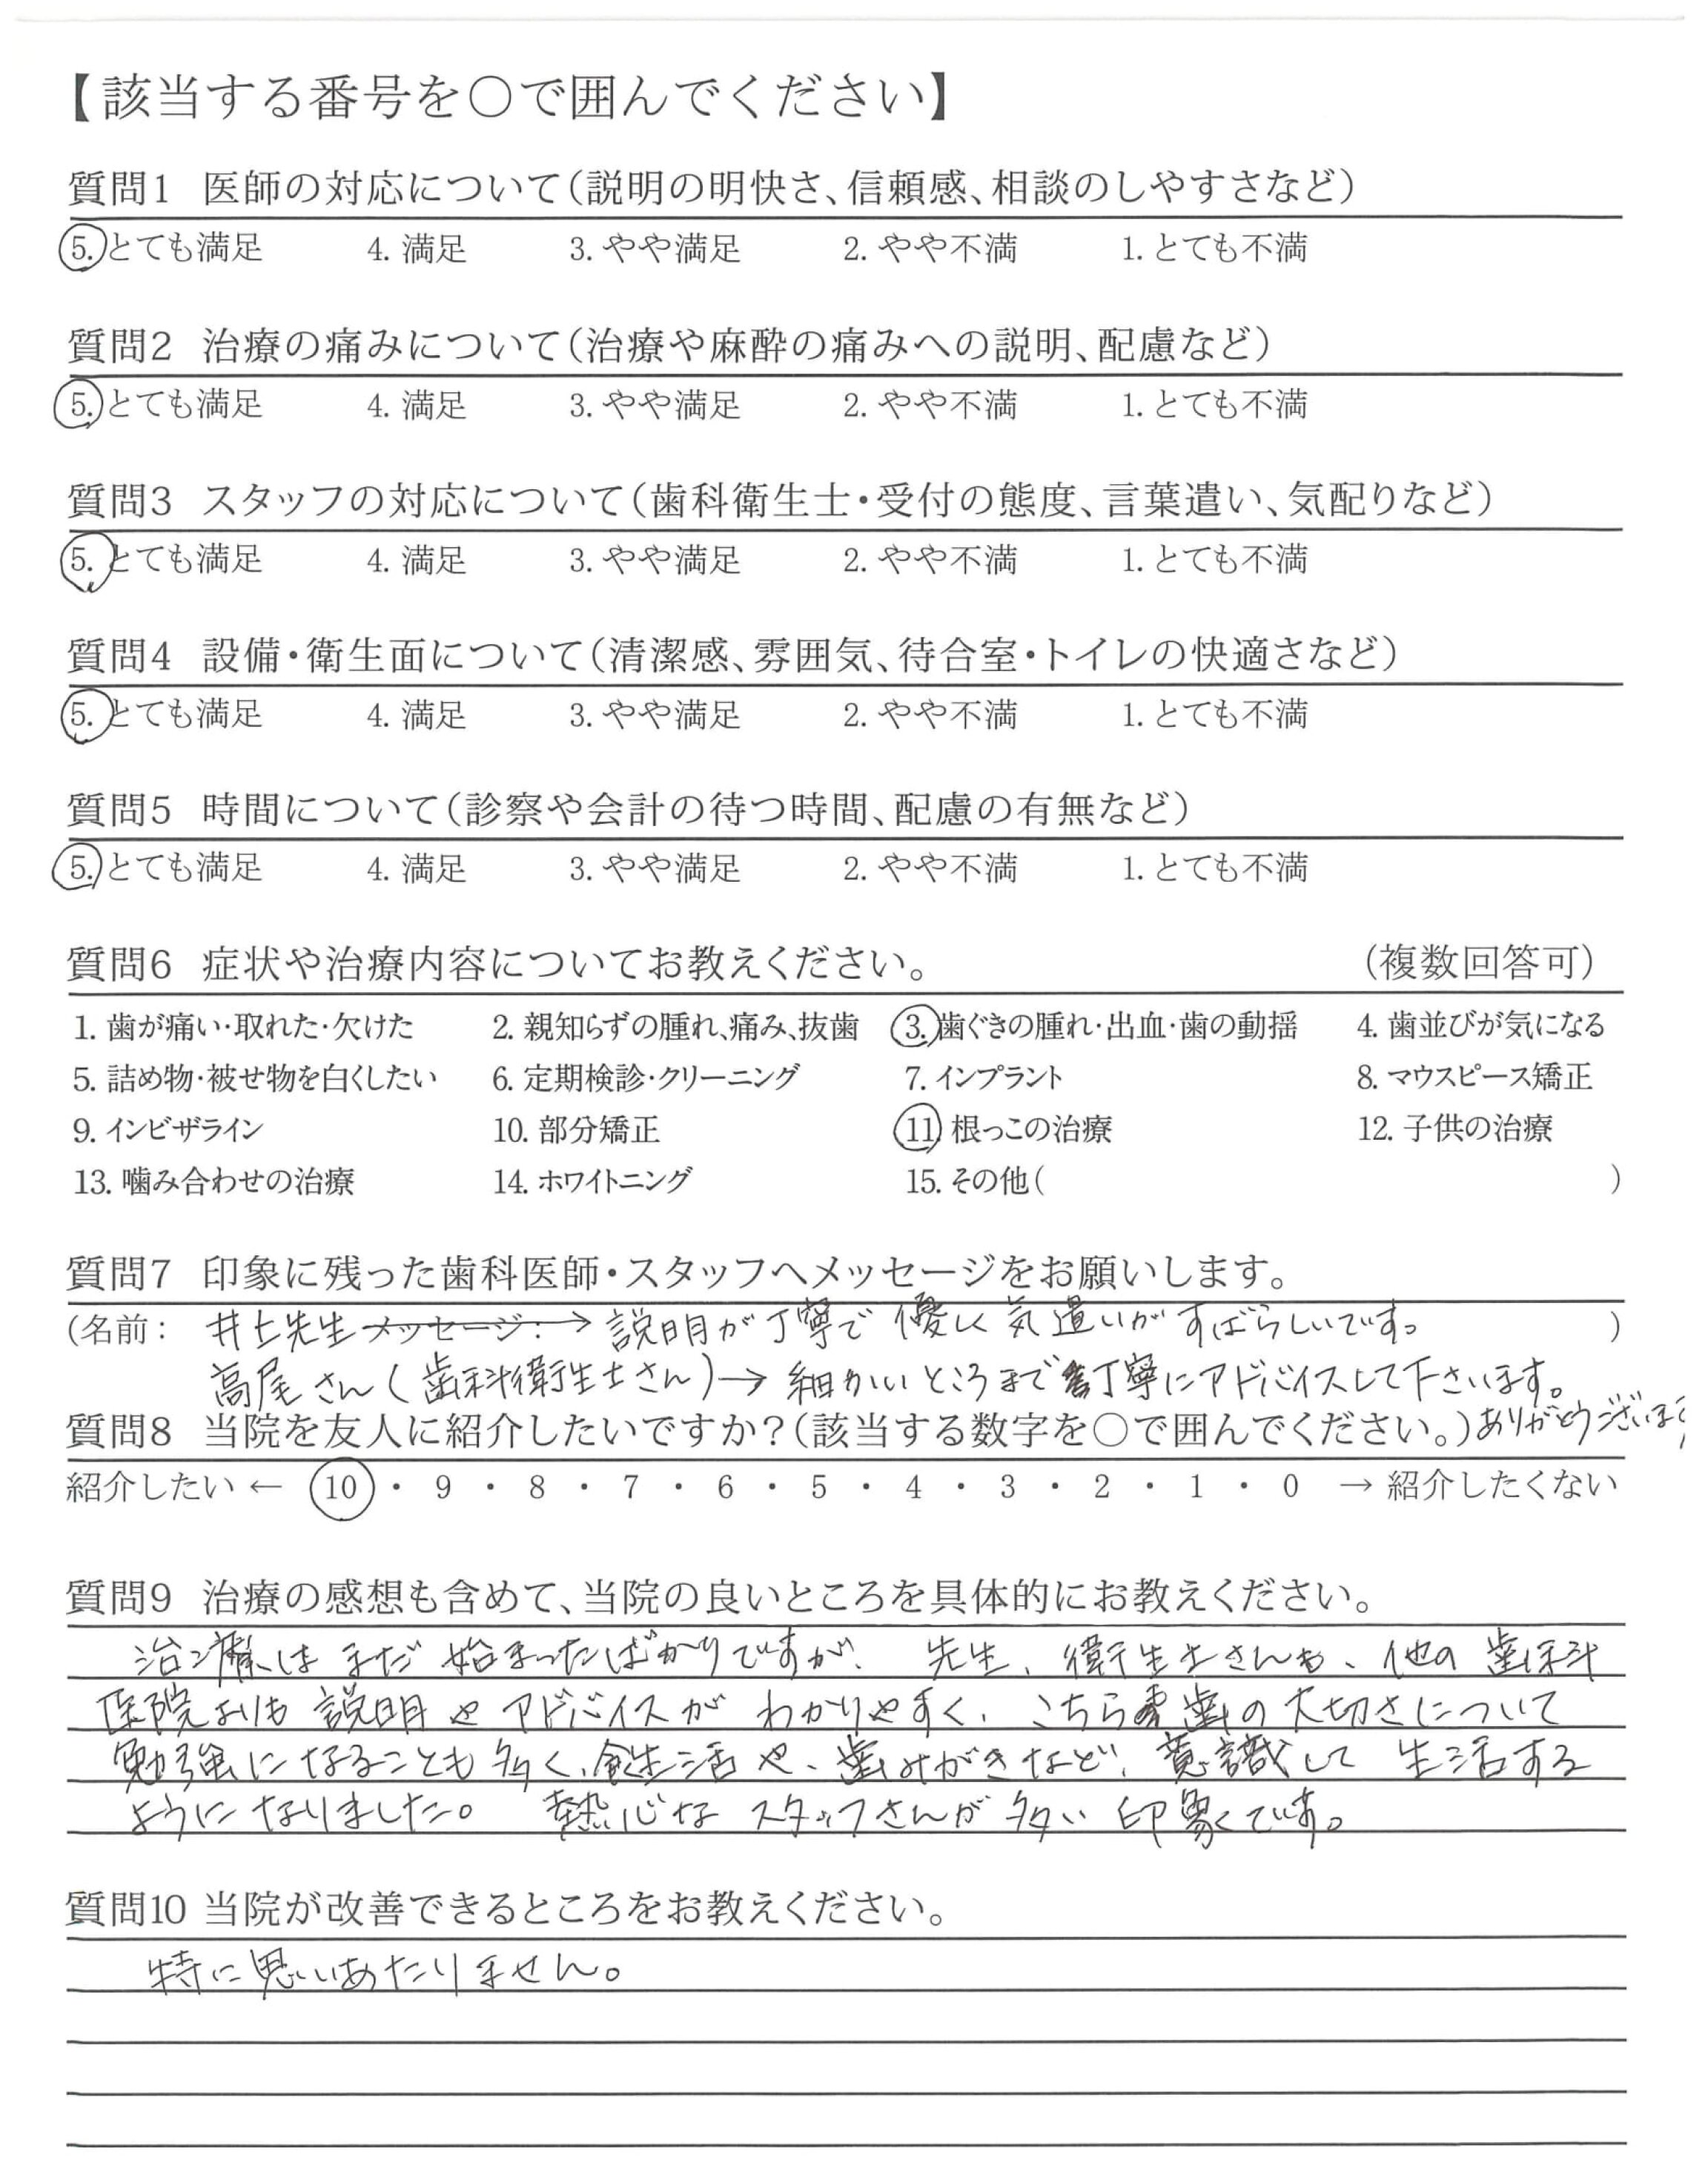 【該当する番号を○で囲んでください】
質問1 医師の対応について(説明の明快さ、信頼感、相談のしやすさなど)
5. とても満足 4. 満足 3. やや満足 2. やや不満 1. とても不満
質問2 治療の痛みについて(治療や麻酔の痛みへの説明、配慮など)
5. とても満足 4. 満足 3. やや満足 2. やや不満 1. とても不満
質問3 スタッフの対応について(歯科衛生士・受付の態度、言葉遣い、気配りなど)
5. とても満足 4. 満足 3. やや満足 2. やや不満 1. とても不満
質問4 設備・衛生面について(清潔感、雰囲気、待合室・トイレの快適さなど)
5. とても満足 4. 満足 3. やや満足 2. やや不満 1. とても不満
質問5 時間について(診察や会計の待つ時間、配慮の有無など)
5. とても満足 4. 満足 3. やや満足 2. やや不満 1. とても不満
質問6 症状や治療内容についてお教えください。 (複数回答可)
1. 歯が痛い・取れた・欠けた 2. 親知らずの腫れ、痛み、抜歯 3. 歯ぐきの腫れ・出血・歯の動揺 4. 歯並びが気になる
5. 詰め物・被せ物を白くしたい 6. 定期検診・クリーニング 7. インプラント 8. マウスピース矯正
9. インビザライン 10. 部分矯正 11. 根っこの治療 12. 子供の治療
13. 噛み合わせの治療 14. ホワイトニング 15. その他( )
質問7 印象に残った歯科医師・スタッフへメッセージをお願いします。
(名前: 井上先生 メッセージ: → 説明が丁寧で優しく気遣いがすばらしいです。 )
高尾さん(歯科衛生士さん)→ 細かいところまで丁寧にアドバイスして下さいます。
質問8 当院を友人に紹介したいですか?(該当する数字を○で囲んでください。) ありがとうございます
紹介したい ← 10 ・ 9 ・ 8 ・ 7 ・ 6 ・ 5 ・ 4 ・ 3 ・ 2 ・ 1 ・ 0 → 紹介したくない
質問9 治療の感想も含めて、当院の良いところを具体的にお教えください。
治療はまだ始まったばかりですが、先生、衛生士さんも、他の歯科
医院よりも説明やアドバイスがわかりやすく、こちらも歯の大切さについて
勉強になることも多く、食生活や、歯みがきなど、意識して生活する
ようになりました。 熱心なスタッフさんが多い印象です。
質問10 当院が改善できるところをお教えください。
特に思いあたりません。